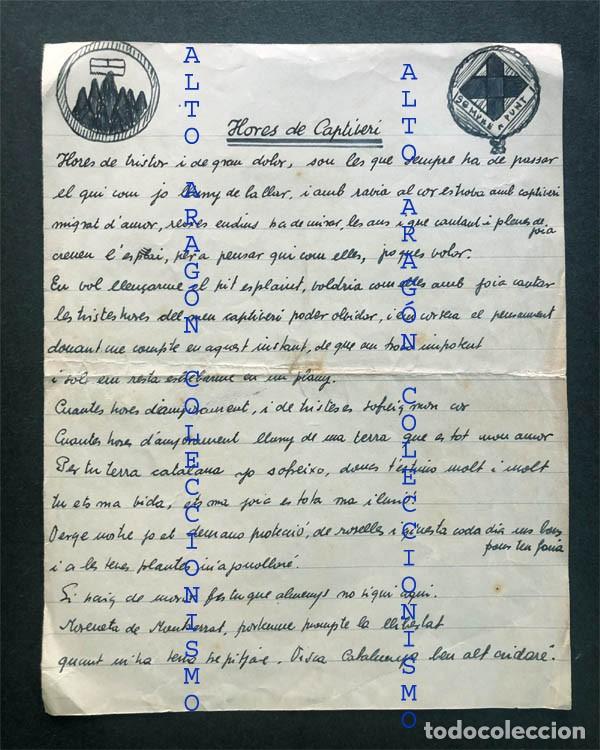 SEMPRE A PUNT
Hores de Captiveri
Hores de tristor i de gran dolor, son les que sempre ha de passar
el qui com jo lluny de la llar, i amb rabia al cor es troba amb captiveri
migrat d'amor, reixes endins ha de mirar, les aus i que cantant i plenes de joia
creuen l'espai, per a pensar qui com elles, pogues volar.
En vol llençarme el pit esplaint, voldria com elles amb joia cantar
les tristes hores del meu captiveri poder olvidar, i em corseca el pensament
donant me compte en aquest instant, de que un impotent
i sol em resta esbravarme en un plany.
Cuantes hores d'anyorament, i de tristeses sofreig mon cor
Cuantes hores d'anyorament lluny de ma terra que es tot mon amor
Per tu terra catalana jo sofreixo, doncs t'estimo molt i molt
tu ets ma vida, ets ma joia es tota ma ilusió.
Verge nostre jo et demano protecció, de roselles i ginesta cada dia uns bons
poms ten faria
i a les teves plantes m'ajonolloré.
Si haig de morir fes tu que almenys no sigui aqui.
Moreneta de Montserrat, portenme prompte la llibertat
quant m'ha terra trepitjae. Visca Catalunya ben alt cridaré.
ALTO ARAGÓN COLECCIONISMO
ALTO ARAGÓN COLECCIONISMO
todocoleccion